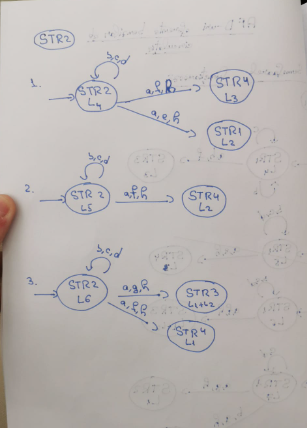 STR2
1.
b,c,d
STR2
L4
STR4
L3
a,e,h
STR1
L2
2.
b,c,d
STR2
L5
a,f,h
STR4
L2
3.
b,c,d
STR2
L6
a,g,h
STR3
L1+L2
a,f,h
STR4
L1